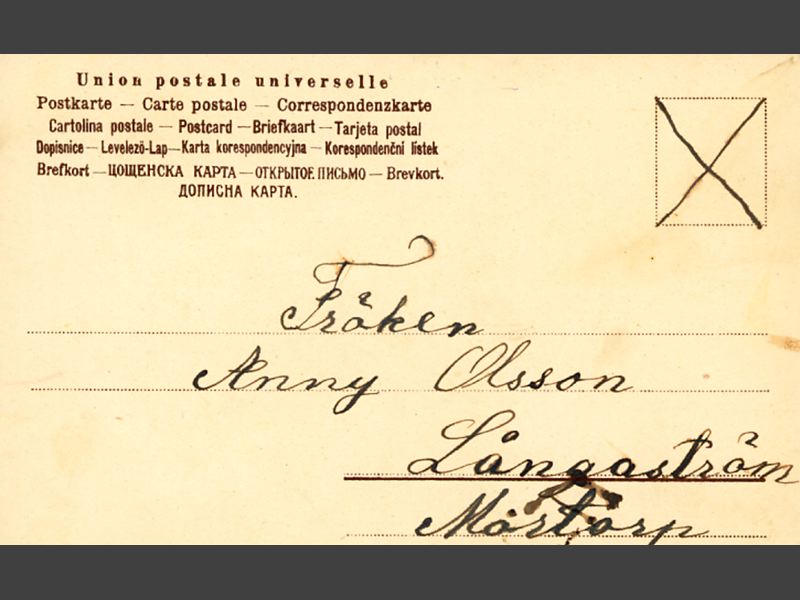 Union postale universelle
Postkarte — Carte postale — Correspondenzkarte
Cartolina postale — Postcard — Briefkaart — Tarjeta postal
Dopisnice — Levelező-Lap — Karta korespondencyjna — Korespondenční lístek
Brefkort — ЦОЩЕНСКА КАРТА — ОТКРЫТОЕ ПИСЬМО — Brevkort.
ДОПИСНА КАРТА.
Fröken
Anny Olsson
Långaström
Mörtorp